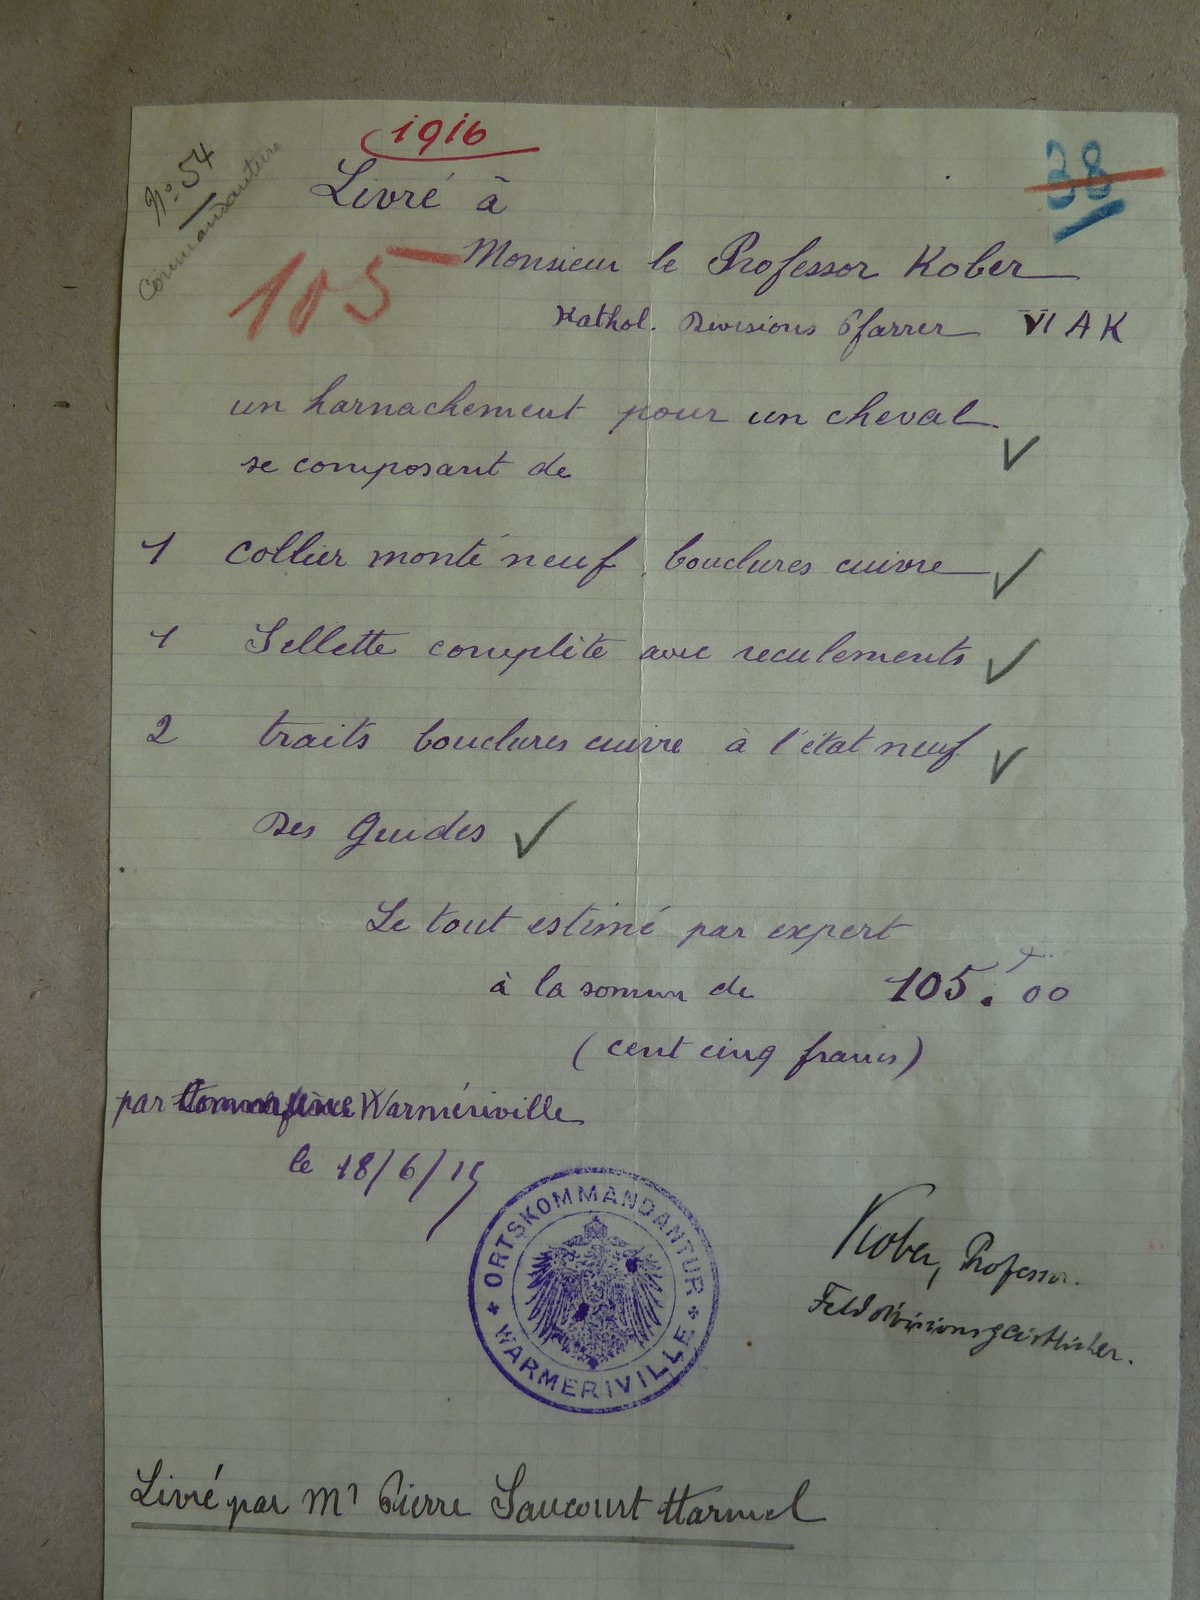 1916
N° 54
Commandanture
38
Livré à
105
Monsieur le Professor Kober
Kathol. Divisions Pfarrer VI AK
un harnachement pour un cheval
se composant de
1 collier monté neuf bouclures cuivre
1 Sellette complète avec reculements
2 traits bouclures cuivre à l'état neuf
Des guides
Le tout estimé par expert
à la somme de 105. 00
(cent cinq francs)
par Warmériville
le 18/6/15
ORTSKOMMANDANTUR
WARMERIVILLE
Kober, Professor.
Felddivisionsgeistlicher.
Livré par Mr Pierre Saucourt Harmel